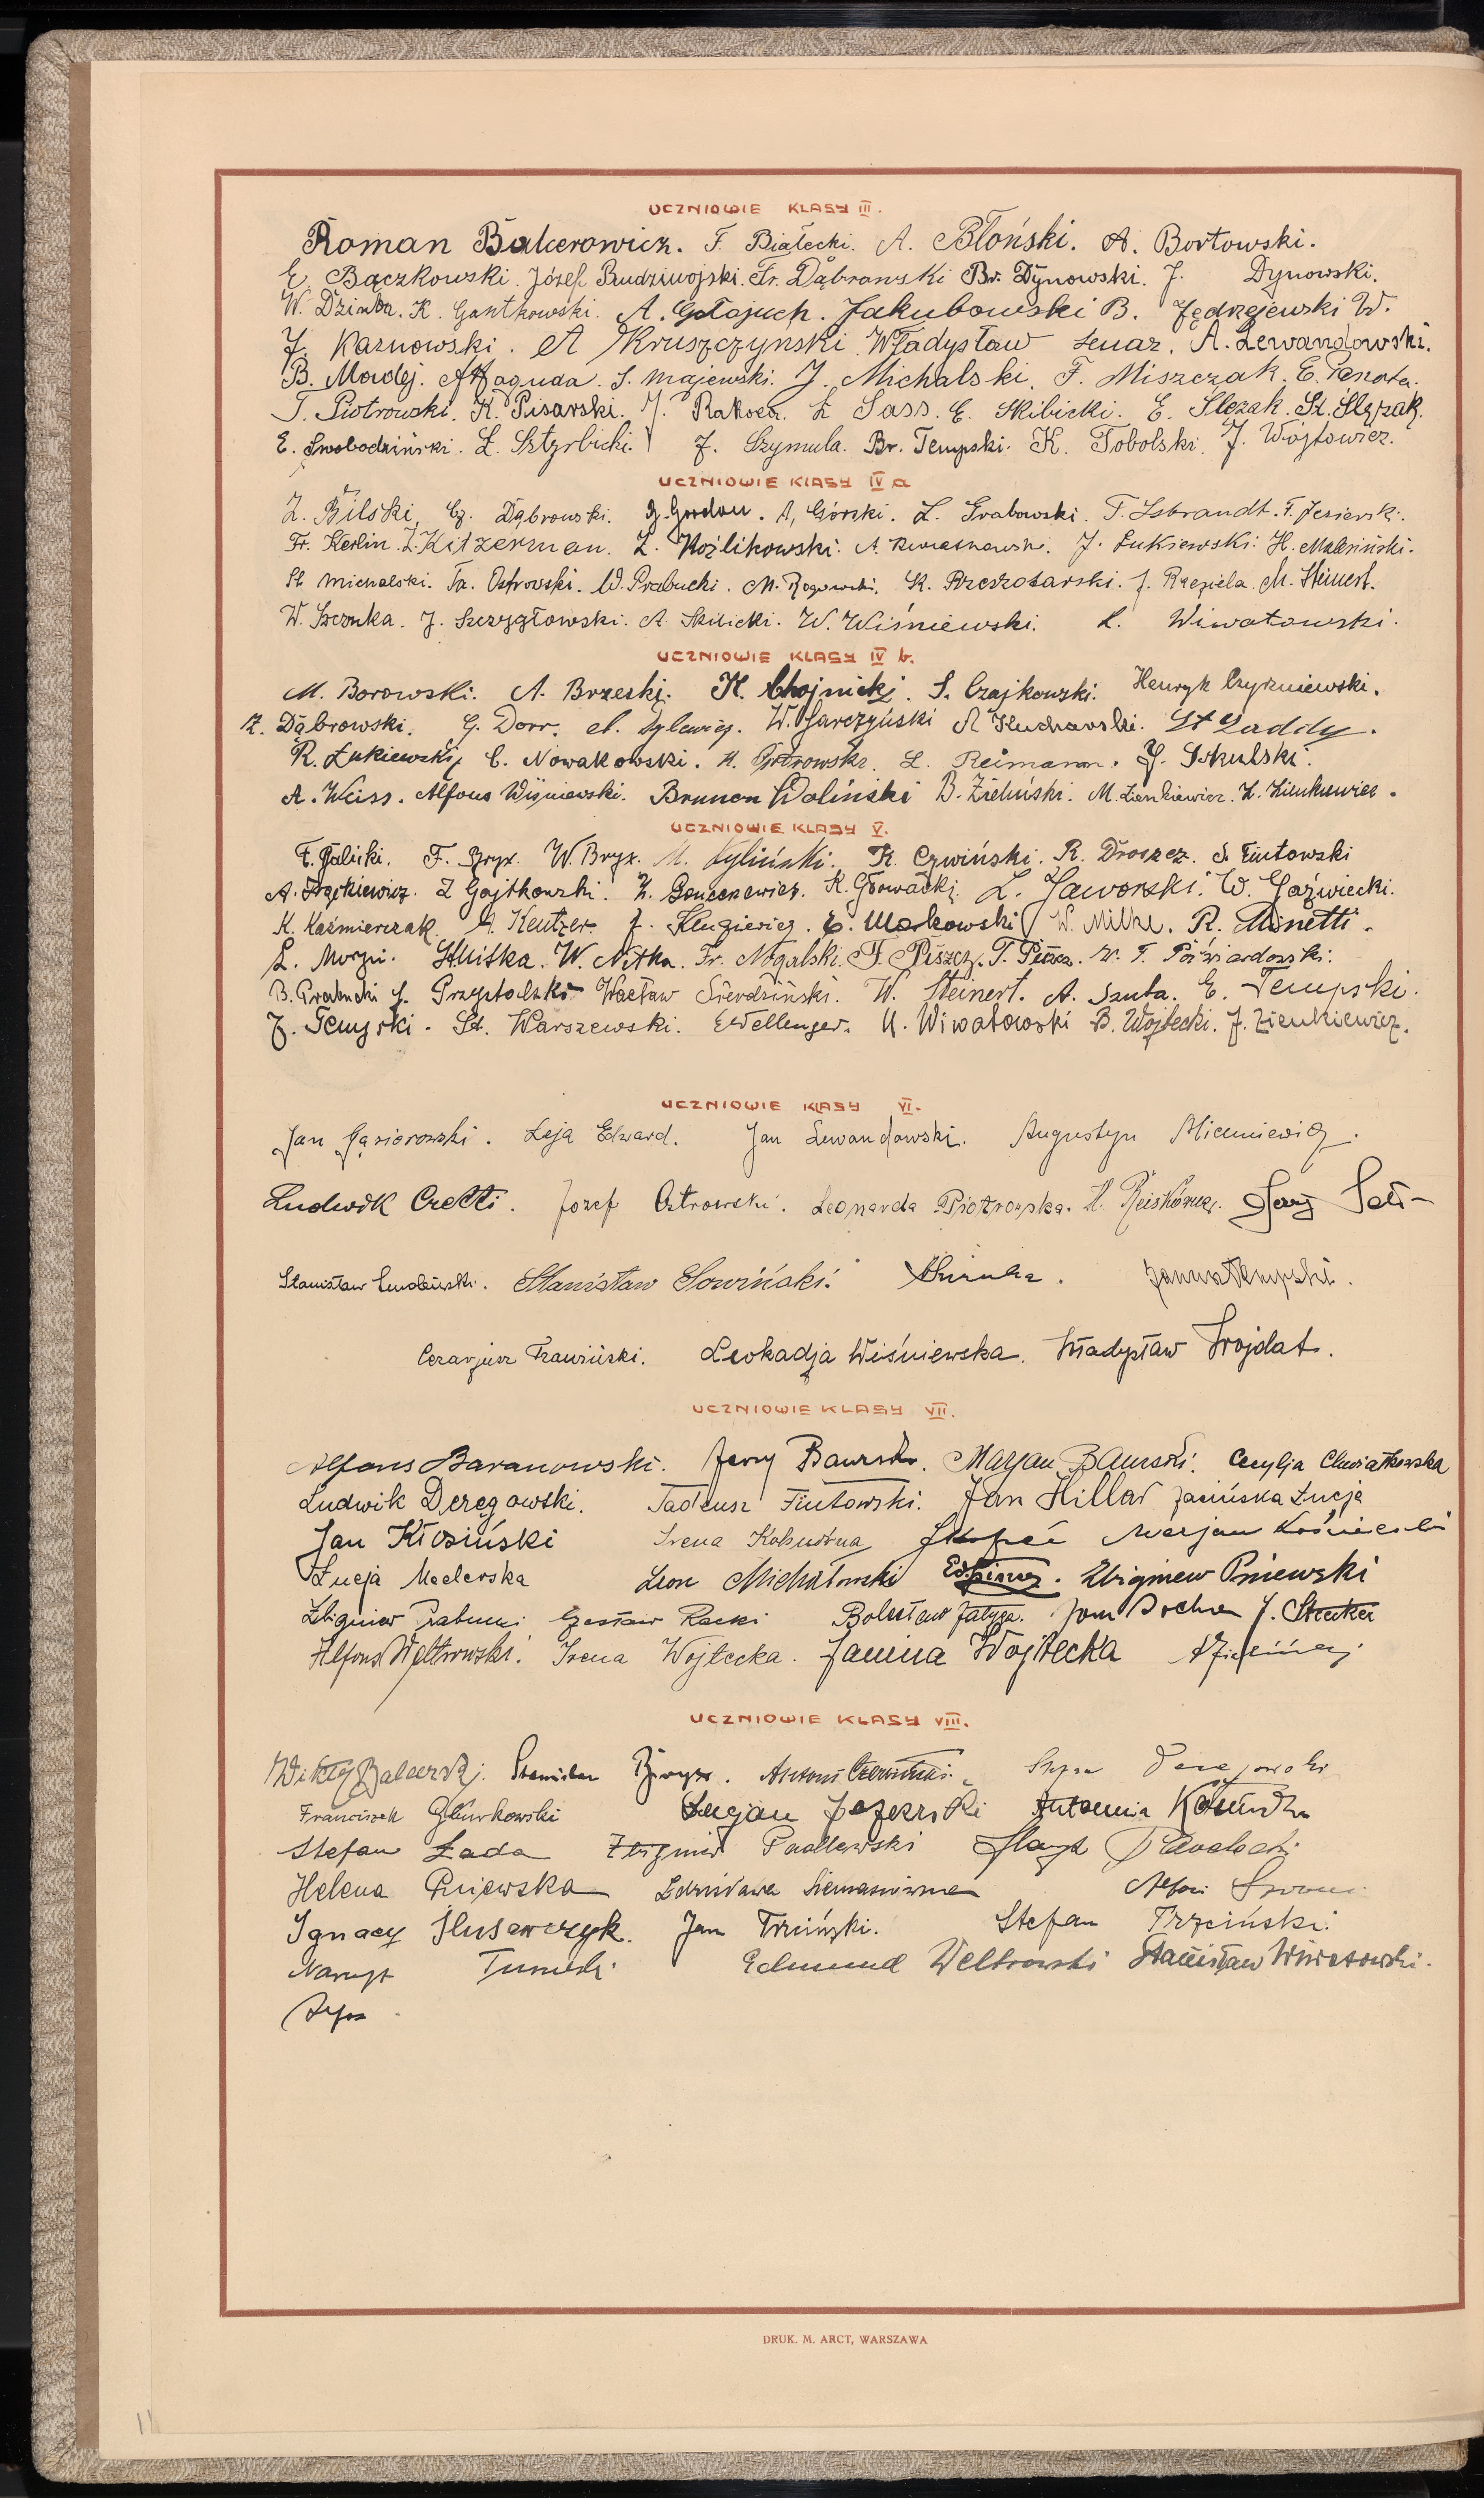 UCZNIOWIE KLASY III.
Roman Balcerowicz. F. Białecki. A. Błoński. A. Bortowski.
E. Bączkowski. Józef Budziwojski. Fr. Dąbrowski Br. Dynowski. J. Dynowski.
W. Dzimba. K. Gontkowski. A. Gołajuch. Jakubowski B. Jędrzejewski W.
J. Karnowski. A Kruszczynski Władysław Lenaz. A. Lewandowski.
B. Macidej. A. Maguda. S. Majewski. J. Michalski. F. Miszczak. E.
T. Piotrowski. K. Pisarski. J. Rakoca. Z Sass. E. Skibicki. E. Slęzak. St. Slęzak.
E. Swobodziński. Z. Sztyrbicki. J. Szymula. Br. Tempski. K. Tobolski. J. Wójtowicz.
UCZNIOWIE KLASY IV a
Z. Bilski. Cz. Dąbrowski. G. Gordon. A. Górski. L. Grabowski. T. Isbrandt. T. Jezierski.
Fr. Kerlin. Z. Kitzerman. Z. Koźlikowski. A. Kwiatkowski. J. Łukiewski. H. Malesiński.
St. Michalski. Ta. Ostrowski. W. Prabucki. M. Rogowski. K. Rzeszotarski. J. Rzepiela. M. Steinert.
W. Szczuka. J. Szczygłowski. A. Skibicki. W. Wiśniewski. L. Wiwatowski.
UCZNIOWIE KLASY IV b.
M. Borowski. A. Brzeski. H. Chojnicki. S. Czajkowski. Henryk Czyżniewski.
Z. Dąbrowski. G. Dorr. W. Garczyński A Kucharski. St Laddy.
R. Łukiewski, C. Nowakowski. H. Ostrowski. L. Reimann. J. Sikulski.
A. Weiss. Alfons Wiśniewski. Brunon Woliński B. Zieliński. M. Zienkiewicz. Z. Zienkiewicz.
UCZNIOWIE KLASY V.
F. Balicki. F. Bryx. W. Bryx. M. Cyliński. K. Czwiński. R. Droszcz. S. Fiutowski
A. Frąckiewicz. Z Gajtkowski. K. Głowacki. L. Jaworski. W. Jaźwiecki.
K. Kaźmierczak. A. Keutzer. J. Klugiewicz. E. Makowski W. Milke. R. Minetti.
L. Morzyc. St. Mitka. W. Nitka. Fr. Nogalski. F. Piszcz. T. Piszcz. W. T. Poćwiardowski.
B. Prabucki J. Przystalski Wacław Sierdziński. W. Steinert. A. Szuta. E. Tempski.
J. Tempski. St. Warszewski. E. Wellenger. U. Wiwatowski B. Wojtecki. J. Zienkiewicz.
UCZNIOWIE KLASY VI.
Jan Gąsiorowski. Leja Edward. Jan Lewandowski. Augustyn Miecniewicz.
Ludwik Oretti. Józef Ostrowski. Leonarda Piotrowska. Jerzy
Stanisław Smoliński. Stanisław Sowiński. Janina Tempski.
Cezarjusz Trawiński. Leokadja Wiśniewska. Władysław Wojdat.
UCZNIOWIE KLASY VII.
Alfons Baranowski. Jerzy Baurski. Marjan Baurski. Cecylja Chwiatkowska
Ludwik Deręgowski. Tadeusz Fiutowski. Jan Hillar Jasińska Łucja
Jan Kłosiński Irena Kobusówna J. Kopeć Marjan Kośnierski
Łucja Maclerska Leon Michałowski Zbigniew Pniewski
Zbigniew Prabucki Czesław Racki Bolesław Jan Sochon J. Strecker
Alfons Weltrowski. Irena Wojtecka. Janina Wojtecka
UCZNIOWIE KLASY VIII.
Wiktor Balcerski. Stanisław Bryx. Antoni Czerwiński.
Franciszek Główkowski Lucjan Jezierski Antonia
Stefan Łada Zbigniew Paulewski
Helena Pniewska Zdzisława Siemasówna
Ignacy Ślusarczyk. Jan Trzciński. Stefan Trzciński.
Edmund Weltrowski Stanisław Wiwatowski.
DRUK. M. ARCT, WARSZAWA
11